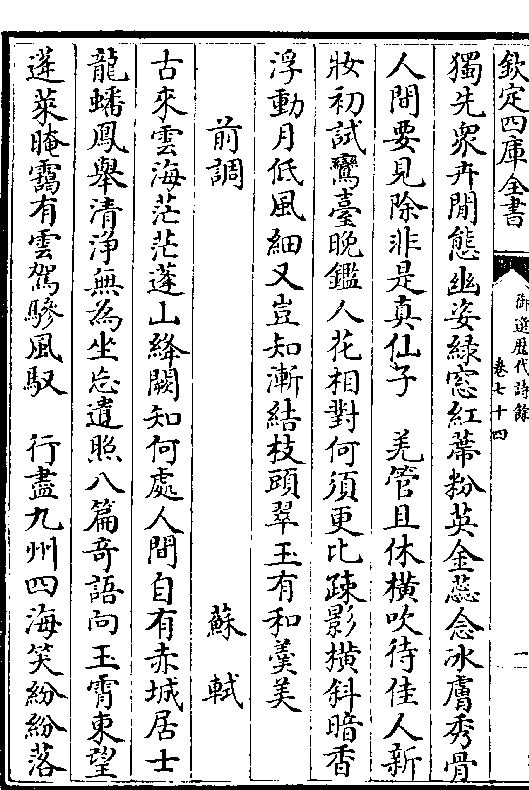 欽定四庫全書
御選歷代詩餘
卷七十四
一
獨先衆卉閒態幽姿緑窓紅蔕粉英金蕊念冰膚秀骨
人間要見除非是真仙子　羌管且休横吹待佳人新
妝初試鸞臺晚鑑人花相對何須更比疎影横斜暗香
浮動月低風細又豈知漸結枝頭翠玉有和羹美
前調　蘇軾
古來雲海茫茫蓬山絳闕知何處人間自有赤城居士
龍蟠鳳舉清浄無為坐忘遺照八篇奇語向玉霄東望
蓬萊晻靄有雲駕驂風馭　行盡九州四海笑紛紛落